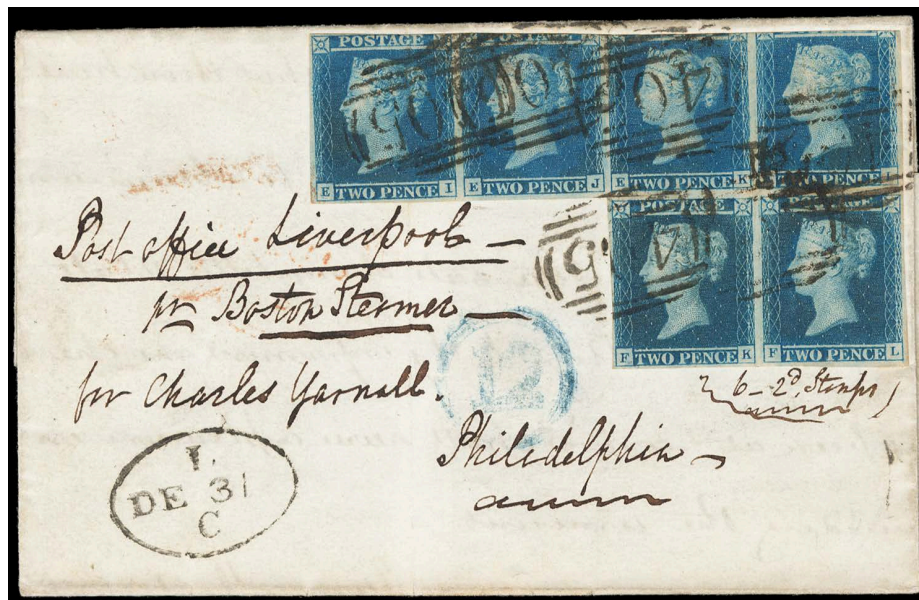 POSTAGE
POSTAGE
E TWO PENCE I
E TWO PENCE J
E TWO PENCE K
E TWO PENCE L
405
POSTAGE
POSTAGE
F TWO PENCE K
F TWO PENCE L
Post office Liverpool —
pr Boston Steamer —
for Charles Yarnall.
12
6 - 2d. Stamps
Philadelphia —
L
DE 31
C